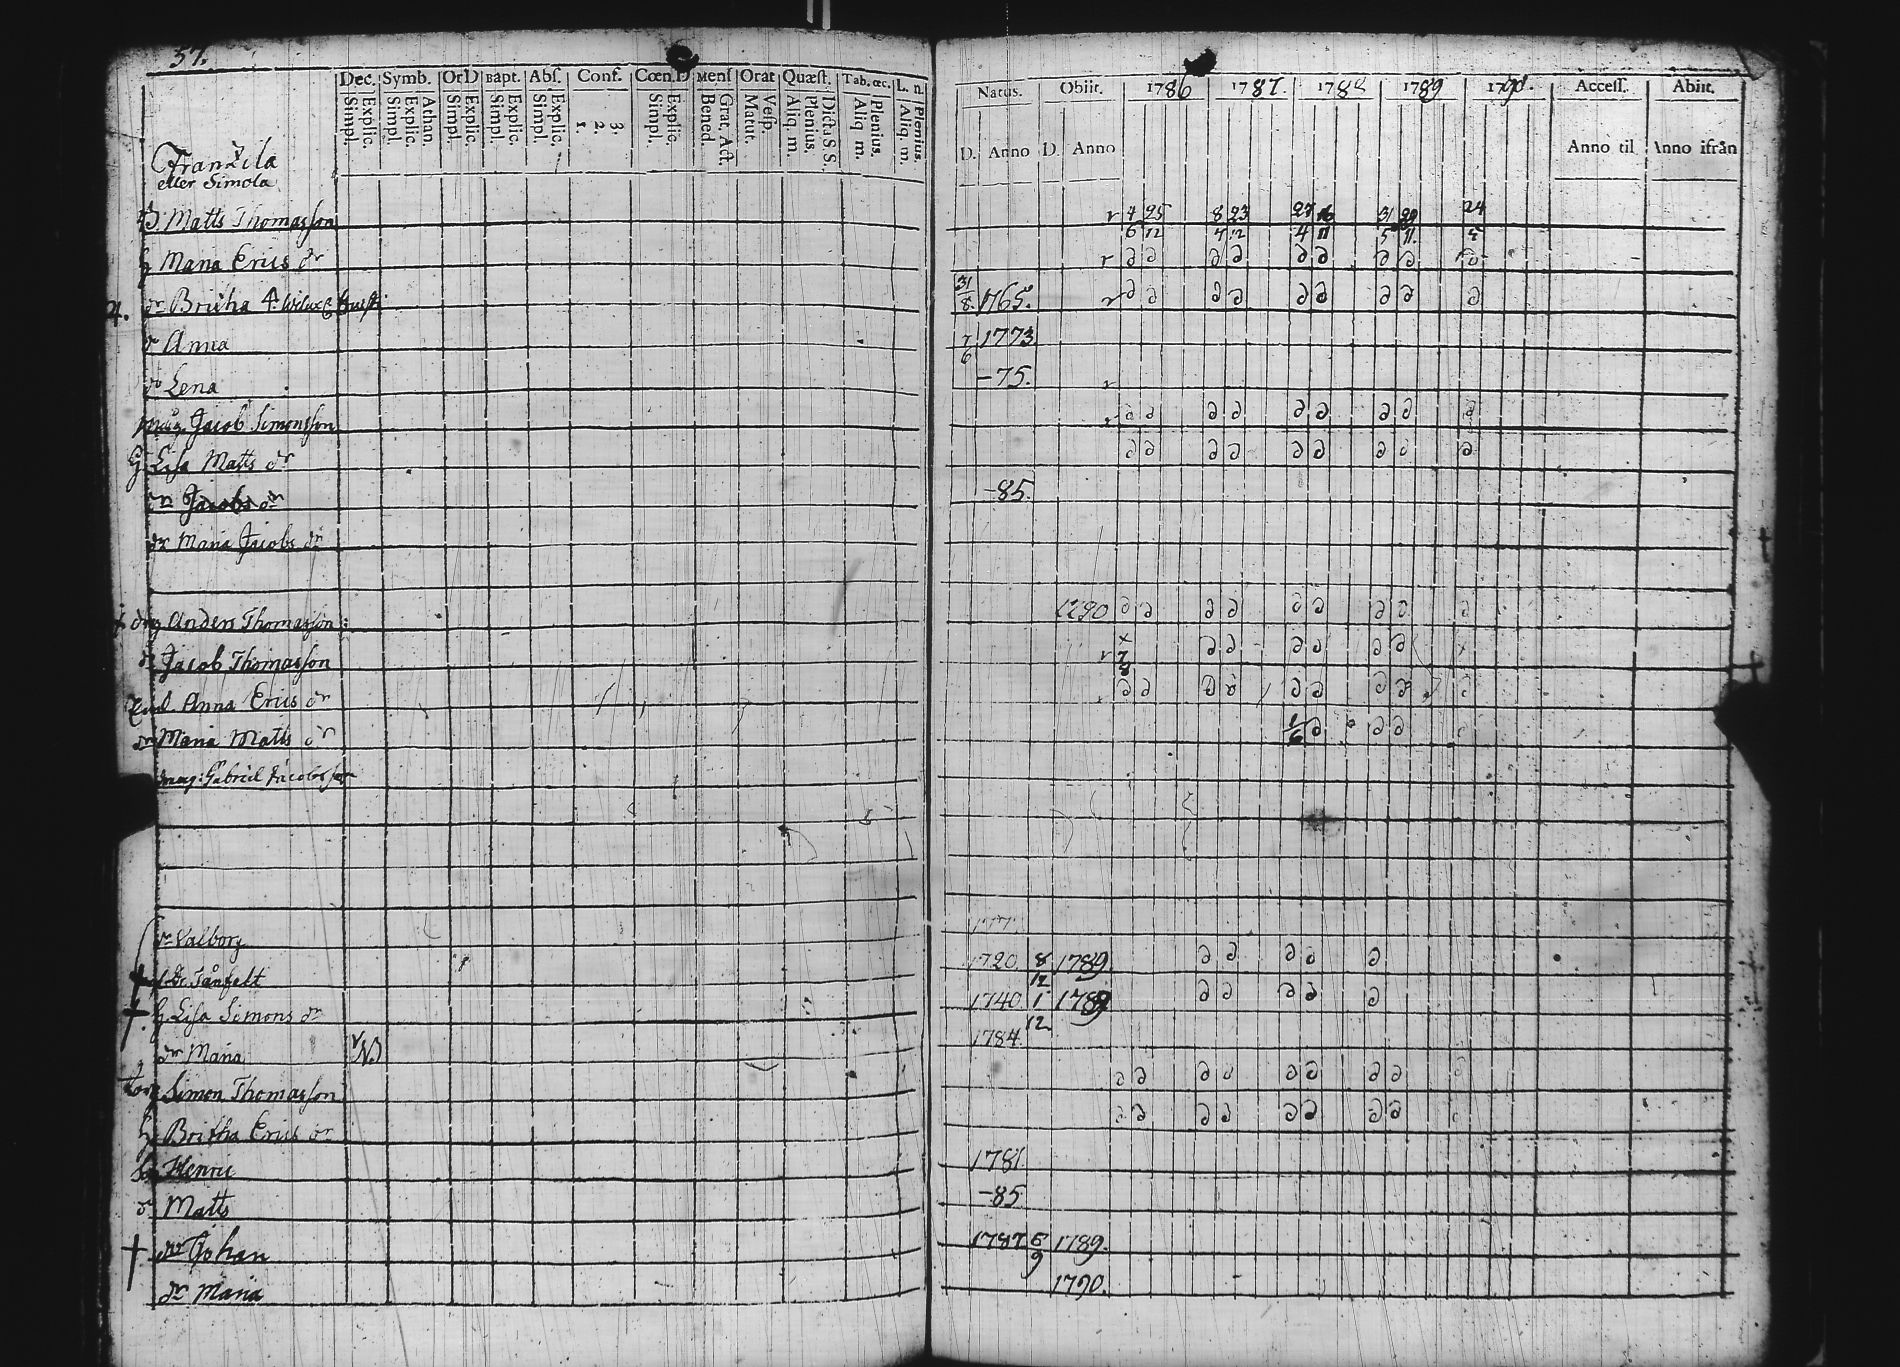 57.
Dec. Symb. Or:D Bapt. Abſ. Conf. Cœn.D Menſ Orat Quæſt. Tab. œc. L. n.
Simpl. Explic. Simpl. Explic. Athan. Simpl. Explic. Simpl. Explic. Simpl. Explic. 1. 2. 3. Simpl. Explic. Bened. Grat. Act. Matut. Veſp. Aliq. m. Plenius. Dicta S.S. Aliq. m. Plenius. Aliq. m. Plenius.
Natus. Obiit. 1786 1787. 1788 1789 1790. Acceſſ. Abiit.
D. Anno D. Anno Anno til Anno ifrån
Franzila
eller Simola
B. Matts Thomasson r 4 25 8 23 27 16 31 29 24
6 12 4 12 4 11 5 11. 5
H Maria Erics dr r
4. dr Britha 31 8 1765.
dr Anna 7 6 1773
dr Lena -75. r
Jacob Simonsson
H Lisa Matts dr
dr Jacobs dr -85.
dr Maria Jacobs dr
Anders Thomasson 1790
dr Jacob Thomasson r
Anna Erics dr
dr Maria Matts dr 1 6
Gabriel Jacobsson
dr Valborg 177
Tånfelt 1720 8 12 1789.
H Lisa Simons dr 1740 1 12 1789
dr Maria NB 1784.
Simon Thomasson
H Britha Erics dr
Henric 1781.
Matts -85
Johan 1787 5 9 1789.
dr Maria 1790.